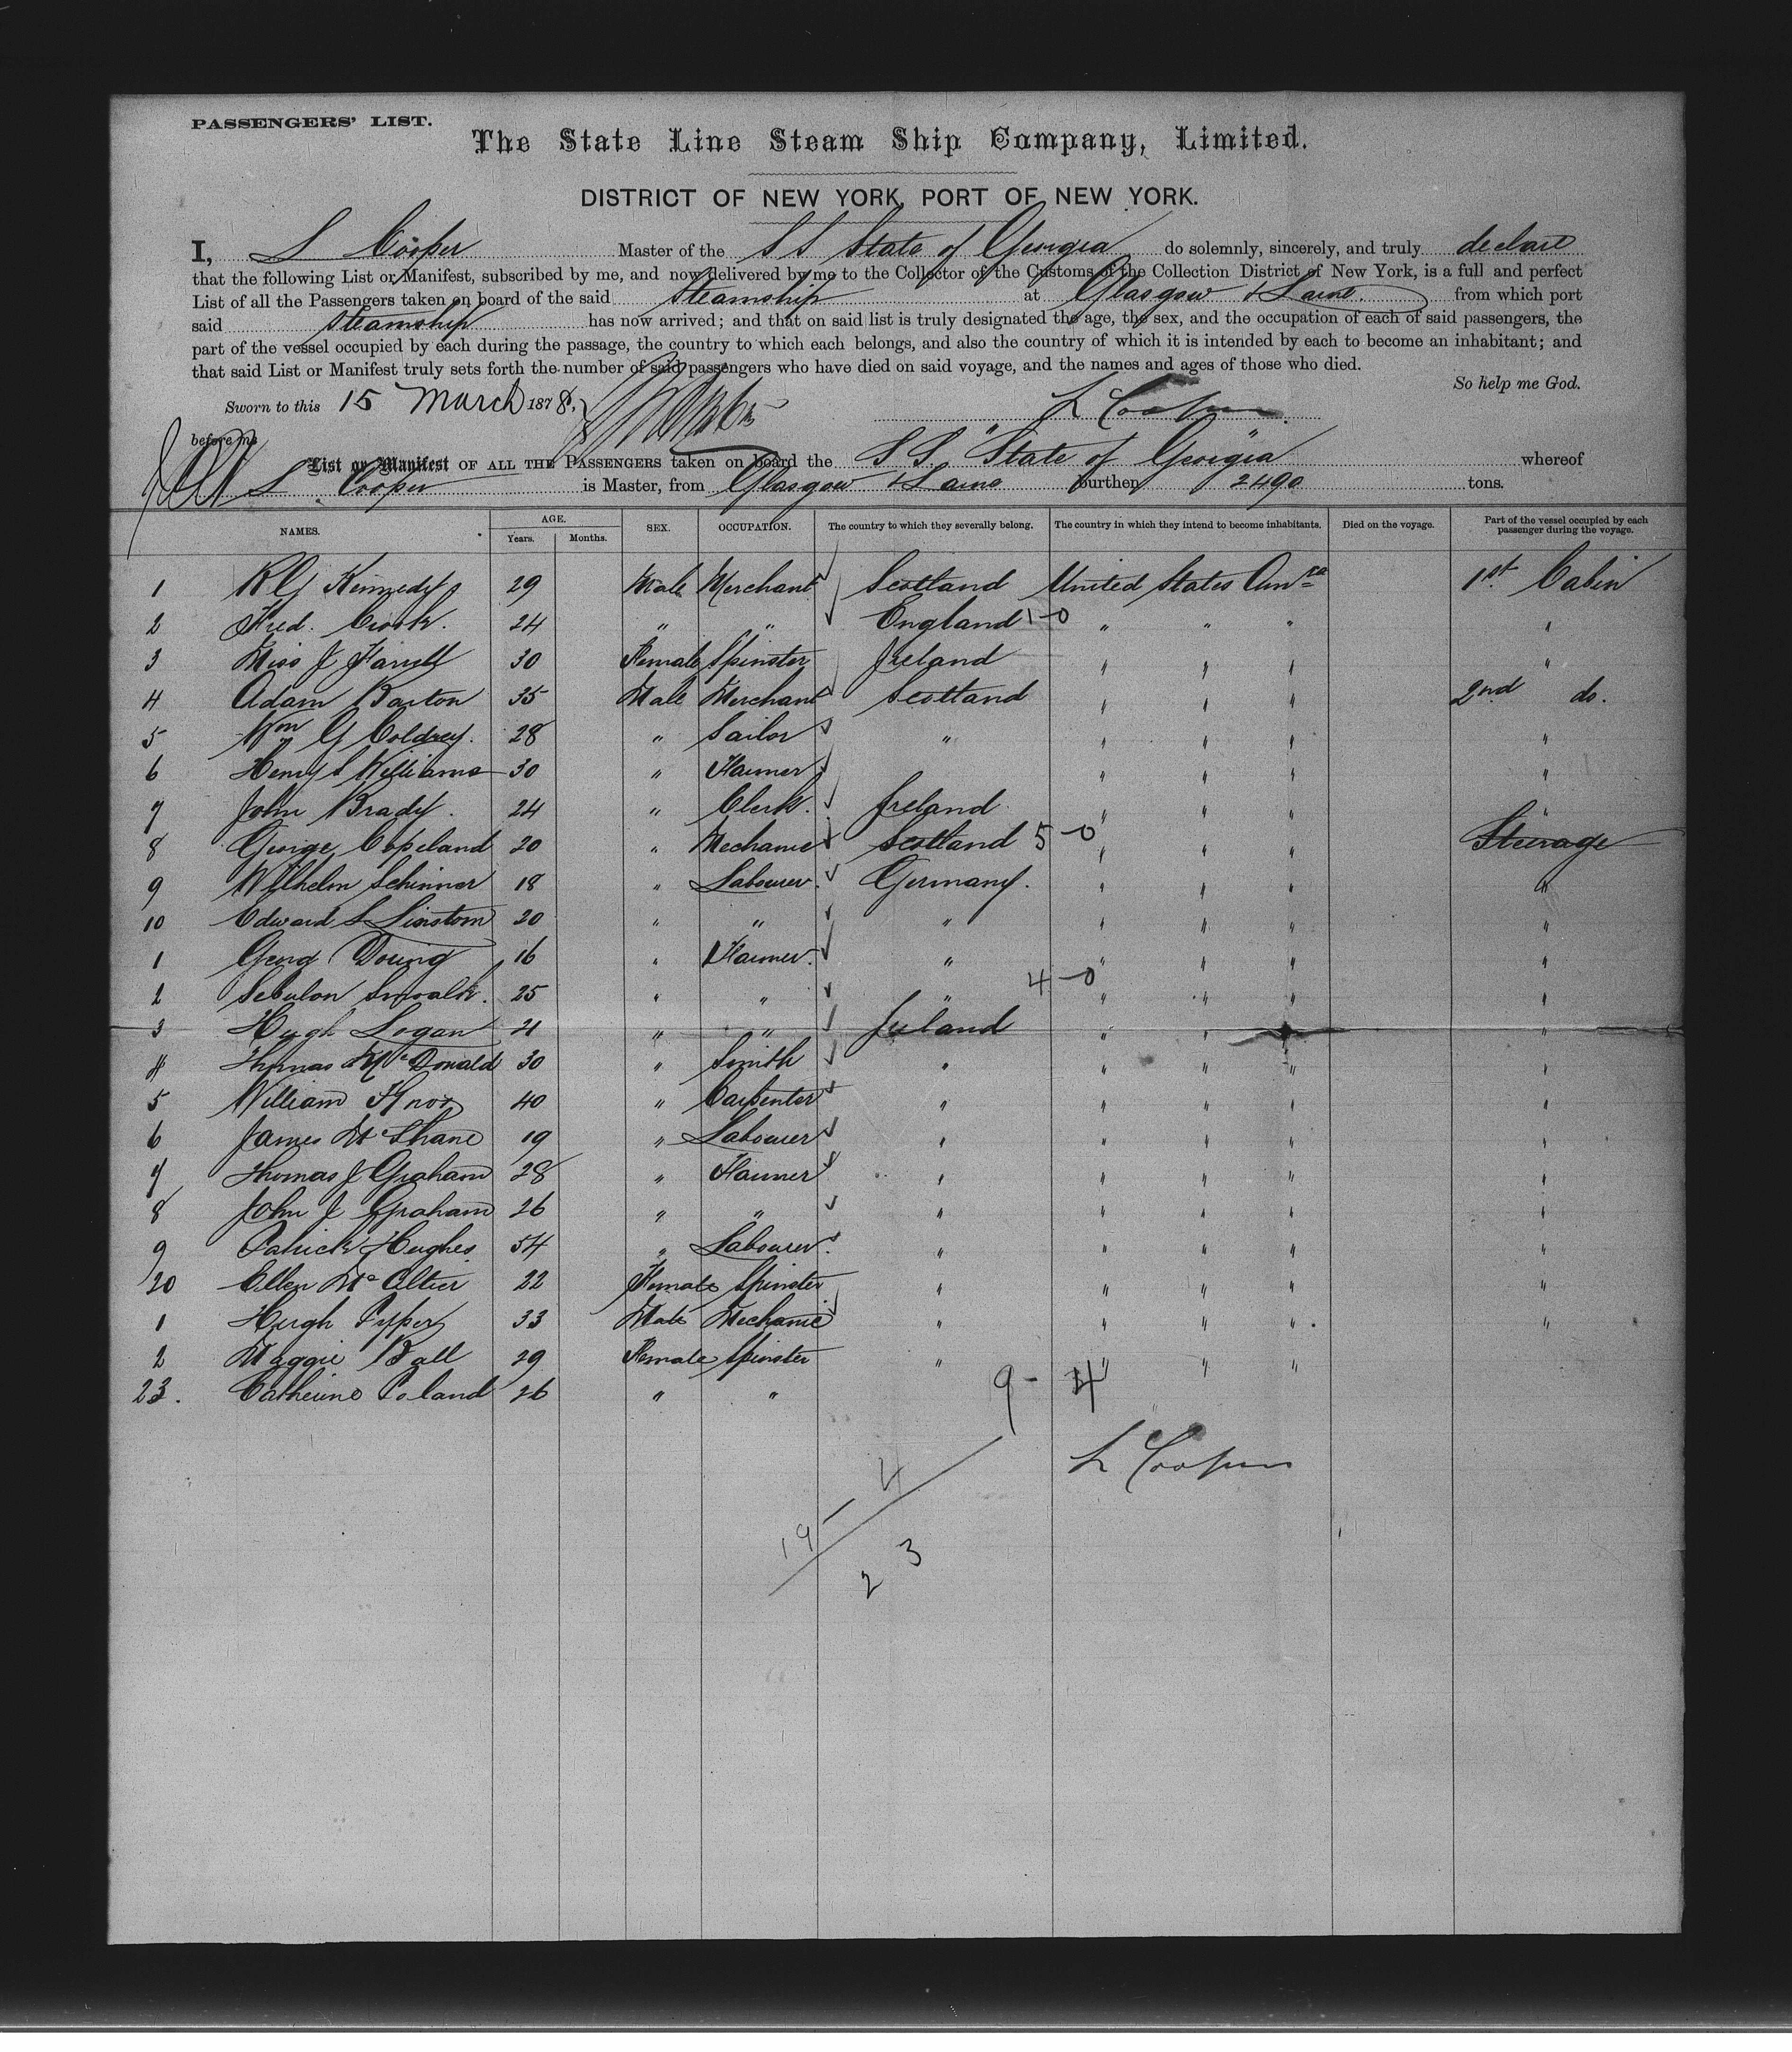 PASSENGERS' LIST.
The State Line Steam Ship Company, Limited.
DISTRICT OF NEW YORK, PORT OF NEW YORK.
I, L Cooper Master of the S S State of Georgia do solemnly, sincerely, and truly declare
that the following List or Manifest, subscribed by me, and now delivered by me to the Collector of the Customs of the Collection District of New York, is a full and perfect
List of all the Passengers taken on board of the said steamship at Glasgow & Larne. from which port
said steamship has now arrived; and that on said list is truly designated the age, the sex, and the occupation of each of said passengers, the
part of the vessel occupied by each during the passage, the country to which each belongs, and also the country of which it is intended by each to become an inhabitant; and
that said List or Manifest truly sets forth the number of said passengers who have died on said voyage, and the names and ages of those who died.
So help me God.
Sworn to this 15 March 1878,
L Cooper
before me
List or Manifest OF ALL THE PASSENGERS taken on board the S S. "State of Georgia" whereof
L Cooper is Master, from Glasgow & Larne burthen 2490 tons.
NAMES. AGE. Years. Months. SEX. OCCUPATION. The country to which they severally belong. The country in which they intend to become inhabitants. Died on the voyage. Part of the vessel occupied by each passenger during the voyage.
1 R G Kennedy 29 Male Merchant Scotland United States Amca 1st Cabin
2 Fred. Crook. 24 " " England 1-0 " " " "
3 Miss J Farrell 30 Female Spinster Ireland " " " "
4 Adam Barton 35 Male Merchant Scotland " " " 2nd do.
5 Wm G Coldrey. 28 " Sailor " " " " "
6 Henry S Williams 30 " Farmer " " " "
7 John Brady. 24 " Clerk. Ireland " " " "
8 George Copeland 20 " Mechanic Scotland 5-0 " " " Steerage
9 Wilhelm Schinner 18 " Labourer. Germany. " " " "
10 Edward L 20 " " " " " " "
1 Georg Doring 16 " Farmer. " " " " "
2 Sebulon 25 " " " 4-0 " " " "
3 Hugh Logan 21 " " Ireland " " " "
4 Thomas McDonald 30 " Smith " " " " "
5 William Knox 40 " Carpenter " " " " "
6 James McShane 19 " Labourer " " " " "
7 Thomas J Graham 28 " Farmer " " " " "
8 John J Graham 26 " " " " " " "
9 Patrick Hughes 54 " Labourer. " " " " "
20 Ellen Mc 22 Female Spinster " " " " "
1 Hugh Pyper 33 Male Mechanic " " " " "
2 Maggie Ball 29 Female Spinster " " " "
23. Catherine Poland 26 " " 9-4
L Cooper
19-4
23